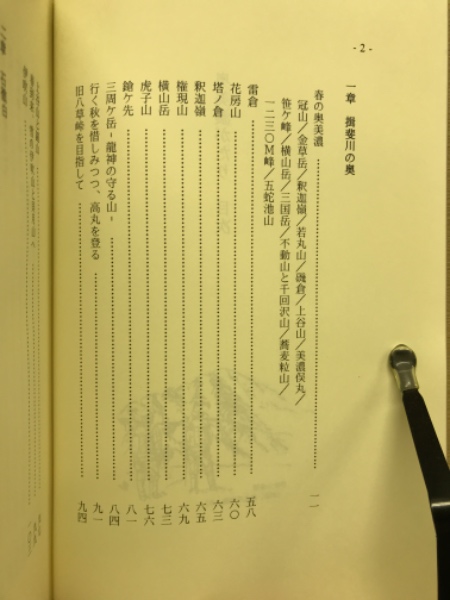 - 2 -
一章　揖斐川の奥
春の奥美濃……一一
冠山／金草岳／釈迦嶺／若丸山／磯倉／上谷山／美濃俣丸／
笹ケ峰／横山岳／三国岳／不動山と千回沢山／蕎麦粒山／
一二三〇M峰／五蛇池山
雷倉……五八
花房山……六〇
塔ノ倉……六三
釈迦嶺……六五
権現山……六九
横山岳……七三
虎子山……七六
鎗ケ先……八一
三周ケ岳－龍神の守る山－……八四
行く秋を惜しみつつ、高丸を登る……九一
旧八草峠を目指して……九四